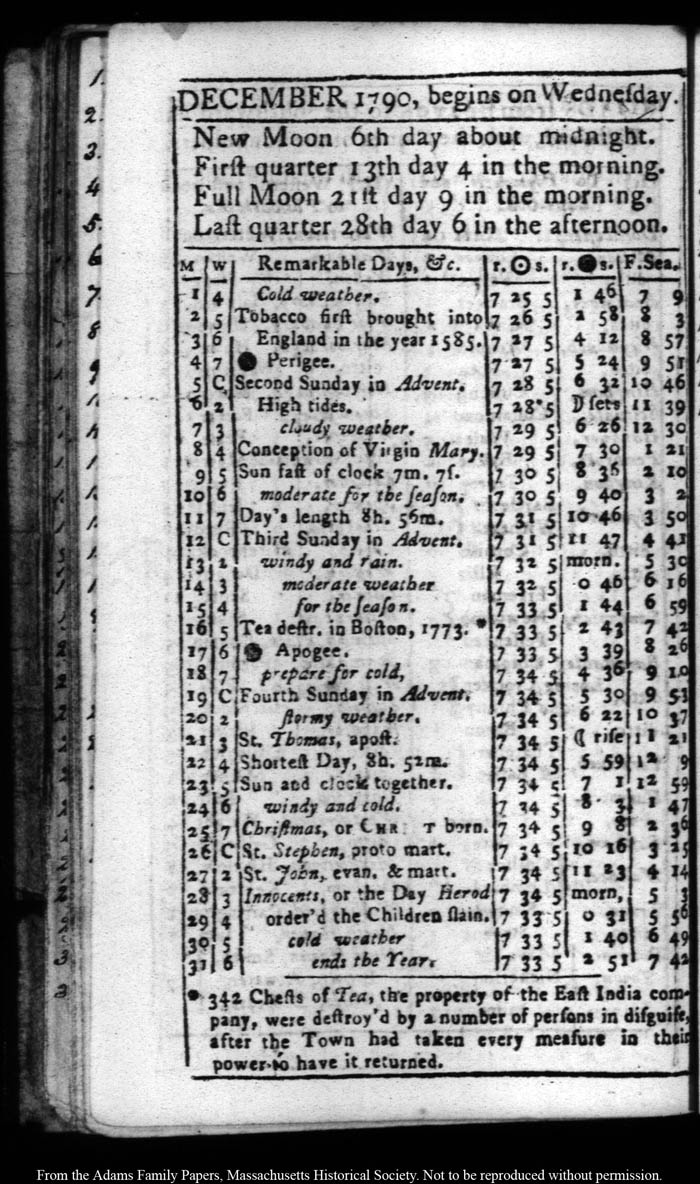 DECEMBER 1790, begins on Wedneſday.
New Moon 6th day about midnight.
Firſt quarter 13th day 4 in the morning.
Full Moon 21ſt day 9 in the morning.
Laſt quarter 28th day 6 in the afternoon.
M W Remarkable Days, &c. r. ☉ s. r. ● s. F. Sea.
1 4 Cold weather. 7 25 5 1 46 7 9
2 5 Tobacco firſt brought into 7 26 5 2 58 8 3
3 6 England in the year 1585. 7 27 5 4 12 8 57
4 7 ● Perigee. 7 27 5 5 24 9 51
5 C Second Sunday in Advent. 7 28 5 6 32 10 46
6 2 High tides. 7 28 5 D ſets 11 39
7 3 cloudy weather. 7 29 5 6 26 12 30
8 4 Conception of Virgin Mary. 7 29 5 7 30 1 21
9 5 Sun faſt of clock 7m. 7ſ. 7 30 5 8 36 2 10
10 6 moderate for the ſeaſon. 7 30 5 9 40 3 2
11 7 Day's length 8h. 56m. 7 31 5 10 46 3 50
12 C Third Sunday in Advent. 7 31 5 11 47 4 41
13 2 windy and rain. 7 32 5 morn. 5 30
14 3 moderate weather 7 32 5 0 46 6 16
15 4 for the ſeaſon. 7 33 5 1 44 6 59
16 5 Tea deſtr. in Boſton, 1773. * 7 33 5 2 43 7 42
17 6 ● Apogee. 7 33 5 3 39 8 26
18 7 prepare for cold, 7 34 5 4 36 9 10
19 C Fourth Sunday in Advent. 7 34 5 5 30 9 53
20 2 ſtormy weather. 7 34 5 6 22 10 37
21 3 St. Thomas, apoſt. 7 34 5 ☾ riſe 11 21
22 4 Shorteſt Day, 8h. 52m. 7 34 5 5 59 12 9
23 5 Sun and clock together. 7 34 5 7 1 12 59
24 6 windy and cold. 7 34 5 8 3 1 47
25 7 Chriſtmas, or CHR T born. 7 34 5 9 8 2 36
26 C St. Stephen, proto mart. 7 34 5 10 16 3 25
27 2 St. John, evan. & mart. 7 34 5 11 23 4 14
28 3 Innocents, or the Day Herod 7 34 5 morn, 5 3
29 4 order'd the Children ſlain. 7 33 5 0 31 5 56
30 5 cold weather 7 33 5 1 40 6 49
31 6 ends the Year. 7 33 5 2 51 7 42
* 342 Cheſts of Tea, the property of the Eaſt India com-
pany, were deſtroy'd by a number of perſons in diſguiſe,
after the Town had taken every meaſure in their
power to have it returned.
1.
2.
3.
4
5.
6
7.
8
9
From the Adams Family Papers, Massachusetts Historical Society. Not to be reproduced without permission.